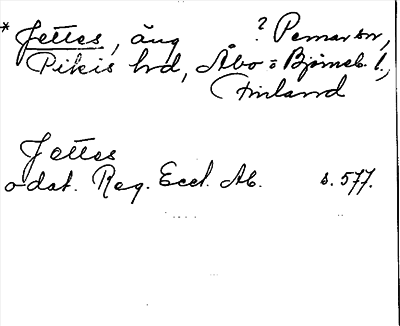 * Jettes, äng ? Pemar sn,
Pikis hd, Åbo = Björneb. l.,
Finland
Jettes
odat. Reg. Eccl. Ab. s. 577.